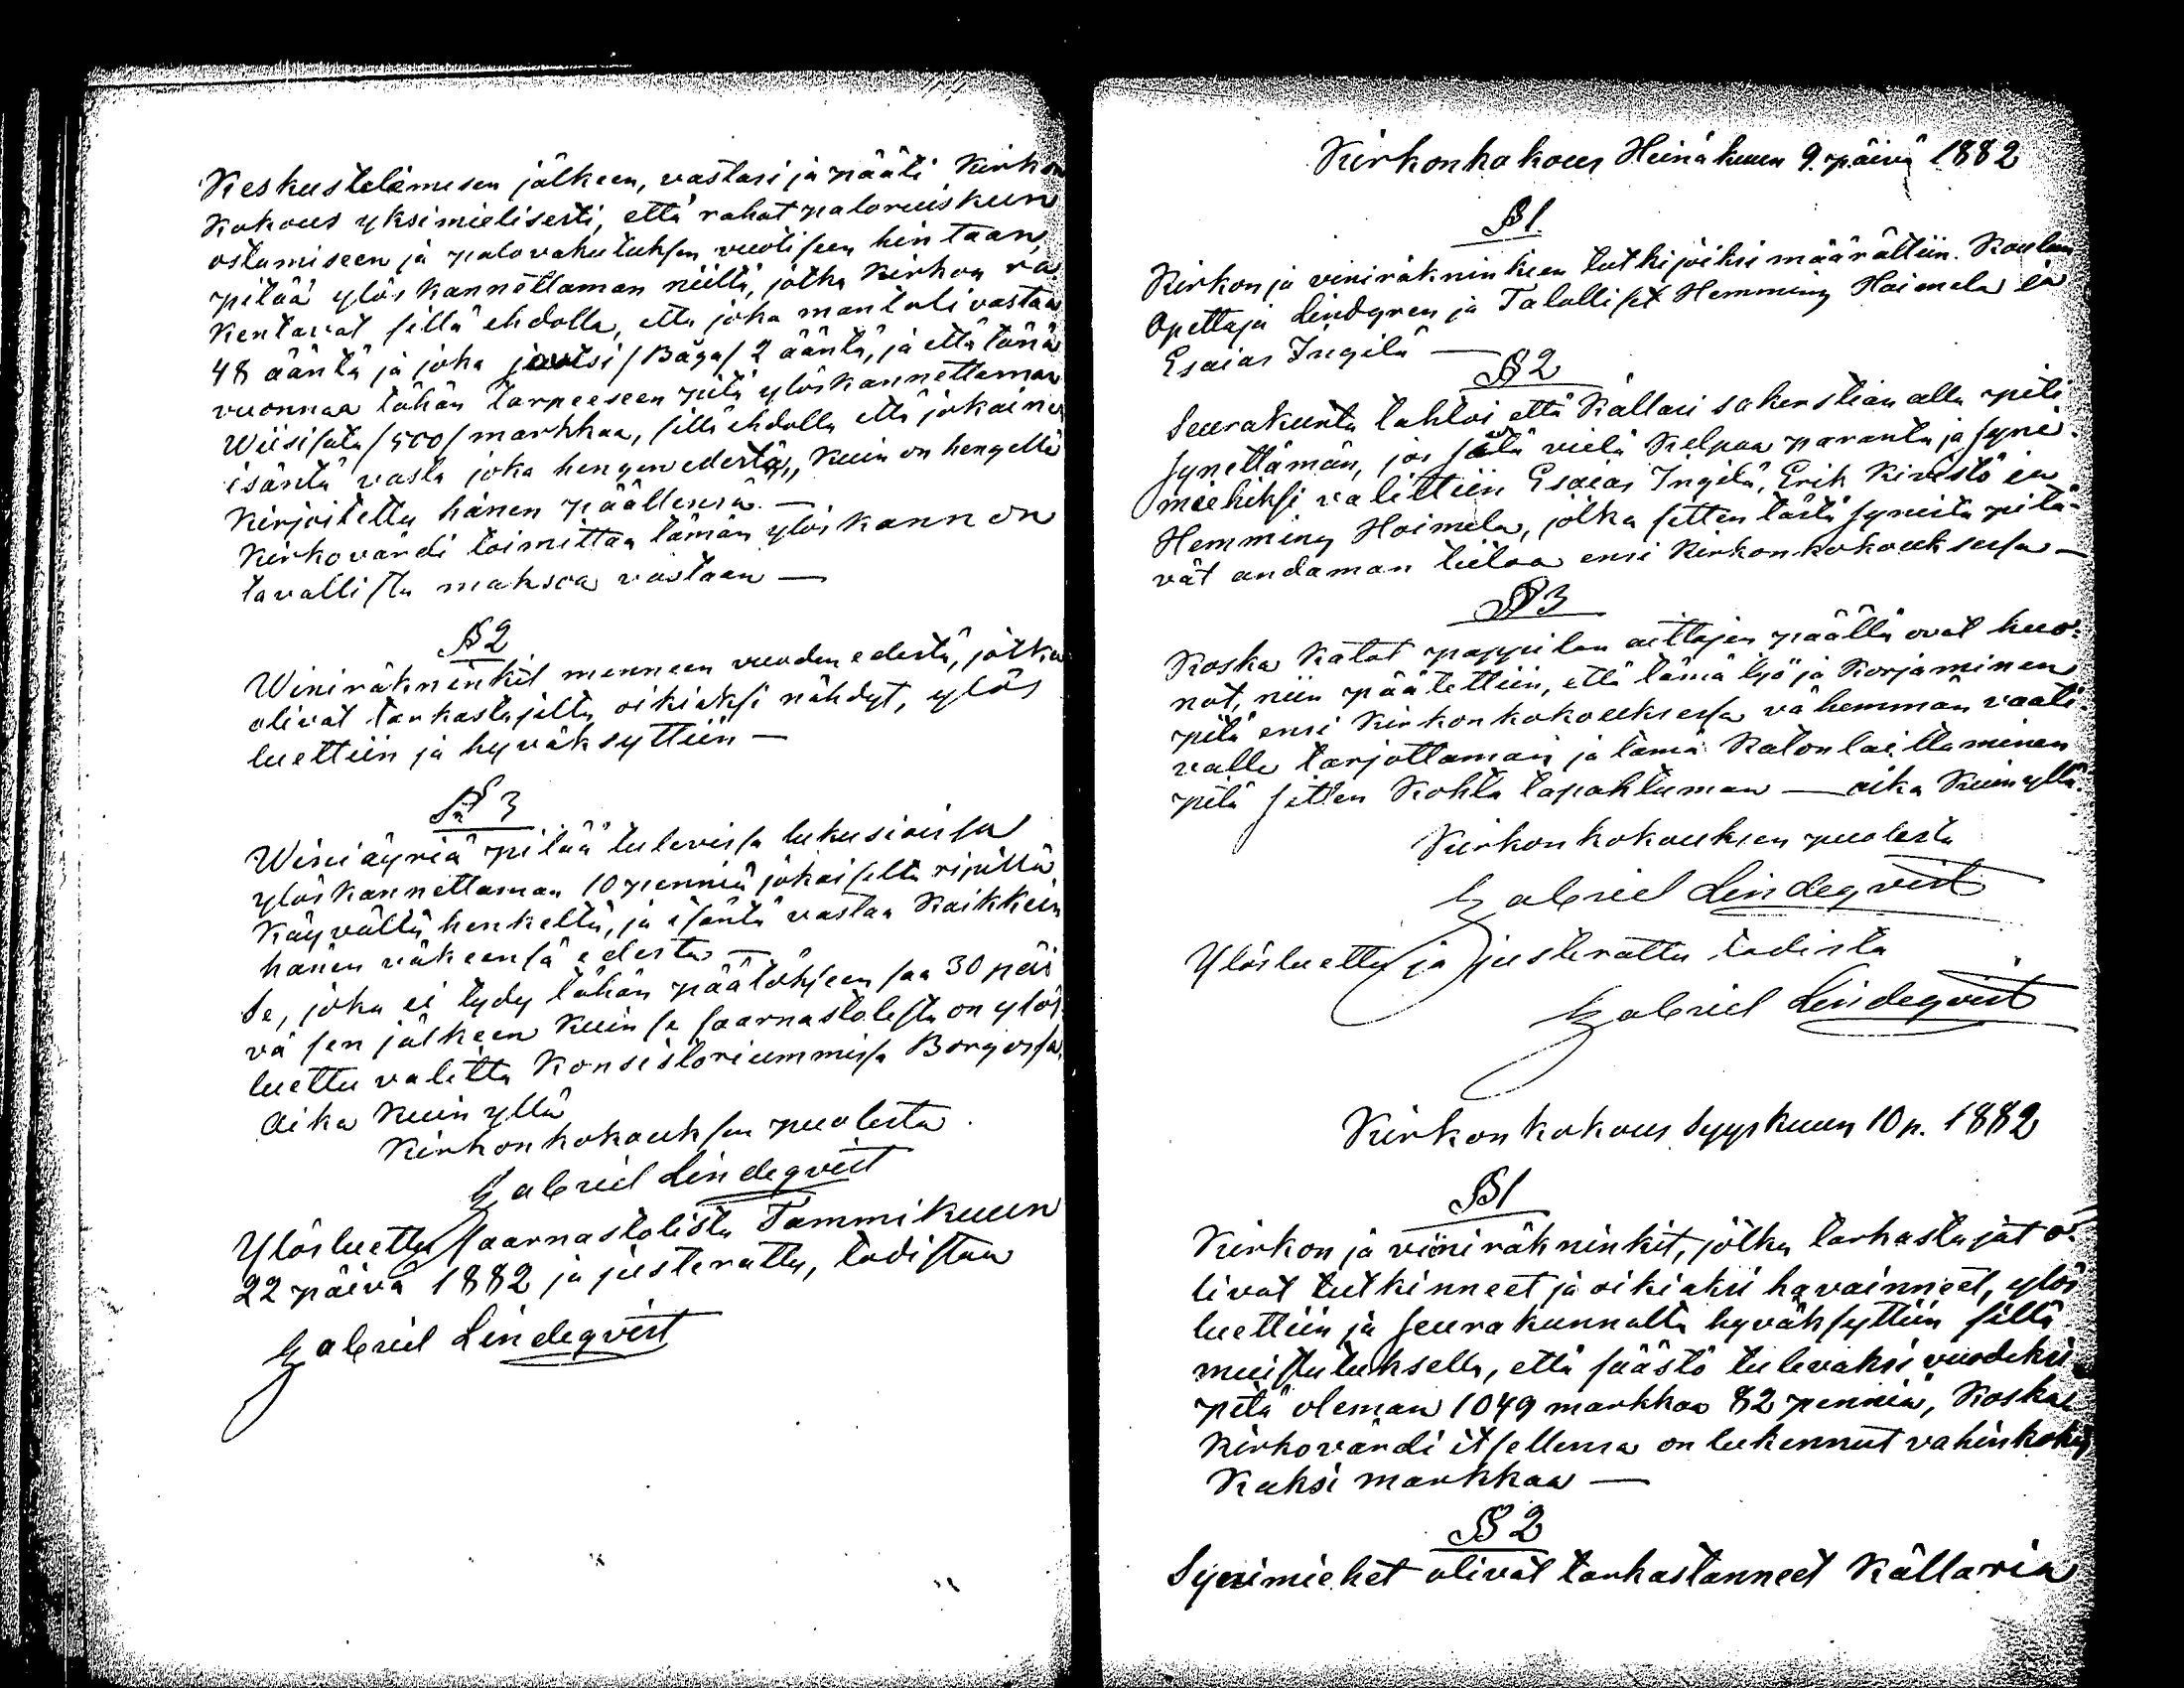 Keskustelemisen jälkeen, vastasi ja pääti Kirkon
Kokous yksimielisesti, että rahat paloruiskun
ostamiseen ja palovakutuksen vuotiseen hintaan,
pitää ylöskannettaman niiltä, jotka Kirkon ra
kentavat sillä ehdolla, että joka mantali vastaa
48 ääntä ja joka joutsi /Båga/ 2 ääntä, ja että tänä
vuonnaa tähän tarpeeseen pitä ylöskannettaman
Wiisisata /500/ markkaa, sillä ehdolla että jokainen
isäntä vasta joka hengen edestä, kuin on hengellä
Kirjoitettu hänen päällensä. —
Kirkovärdi toimittaa tämän ylöskannon
tavallista maksoa vastaan —
§ 2
Winiräkninkit menneen vuoden edestä, jotka
olivat tarkastajilta oikiaksi nähdyt, ylös
luettiin ja hyväksyttiin —
§ 3
Winiäyriä pitää tulevissa lukusioissa
ylöskannettaman 10 penniä jokaiselta ripillä
Käyvältä henkeltä, ja isäntä vastaa Kaikkein
hänen väkeensä edestä —
Se, joka ei tydy tähän päätökseen saa 30 päi
vä sen jälkeen kuin se saarnastolesta on ylös
luettu valitta Konsistoriummissa Borgossa.
Aika kuin yllä
Kirkonkokouksen puolesta
Gabriel Lindeqvist
Ylösluettu saarnastolista Tammikuun
22 päivä 1882 ja justerattu, todistaa
Gabriel Lindeqvist
Kirkonkokous Heinäkuun 9. päivä 1882
§ 1.
Kirkon ja viniräkninkien tutkijoiksi määrättiin. Koulun
Opettaja Lindgren ja Talolliset Hemming Hoimela ja
Esaias Ingilä —
§ 2
Seurakunta tahtoi että Källari sakerstian alla piti
synettämän, jos sitä vielä kelpaa paranta ja syni-
miehiksi valittiin Esaias Ingilä, Erik Kivistö ja
Hemming Hoimela, jotka sitten tästä synistä pitä-
vät andaman tiitoa ensi Kirkonkokouksessa —
§ 3
Koska Katot pappilan aittojen päällä ovat huo-
not, niin päätettiin, että tämä työ ja Korjaminen
pitä ensi Kirkonkokouksessa vähemmän vaati-
valle tarjottaman ja tämä Katonlaittaminen
pitä sitten Kohta tapahtuman — aika Kuin yllä.
Kirkonkokouksen puolesta
Gabriel Lindeqvist
Ylösluettu ja justerattu todista
Gabriel Lindeqvist
Kirkonkokous Syyskuun 10 p. 1882
§ 1
Kirkon ja viiniräkninkit, jotka tarkastajat o-
livat tutkinneet ja oikiaksi havainneet, ylös
luettiin ja seurakunnalta hyväksyttiin sillä
muistutuksella, että säästö tulevaksi vuodeksi
pitä oleman 1049 markkaa 82 penniä, Koska
Kirkovärdi itsellensa on lukennut vahinkoksi
Kaksi markkaa —
§ 2
Synimiehet olivat tarkastanneet Källaria